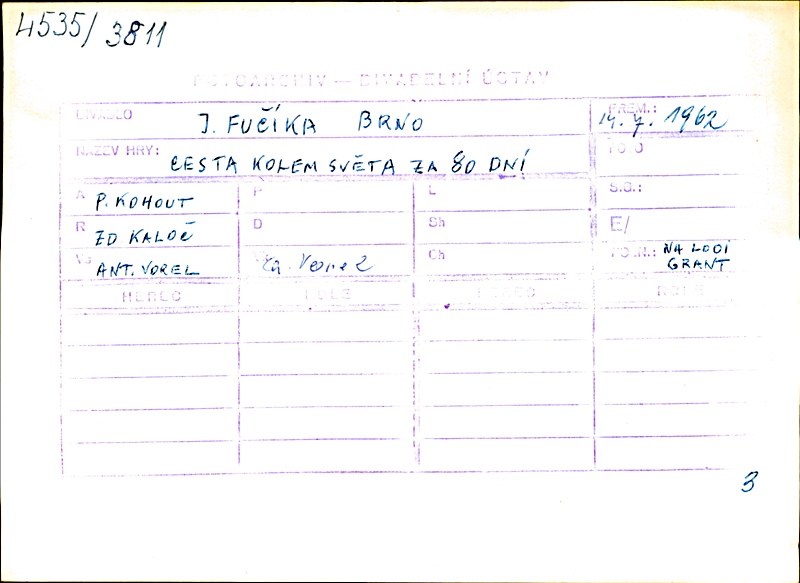 4535/3811
FOTOARCHIV — DIVADELNÍ ÚSTAV
DIVADLO J. FUČÍKA BRNO
PREM.: 14. 7. 1962
NÁZEV HRY: CESTA KOLEM SVĚTA ZA 80 DNÍ
A P. KOHOUT P L S.G.:
R ZD KALOČ D Sh E/
ANT. VOREL Ch NA LODI
GRANT
HEREC ROLE HEREC ROLE
3